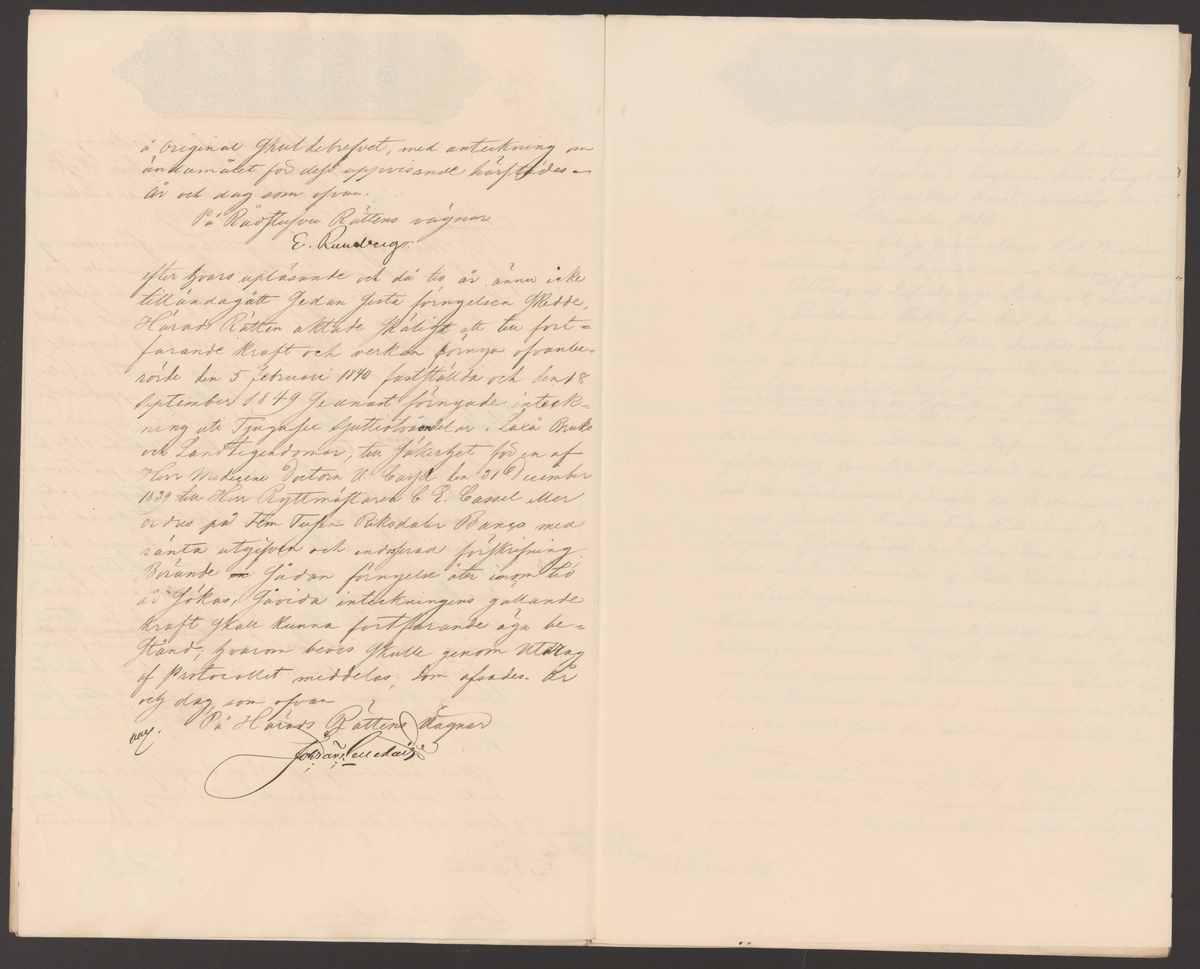 å original Skuldebrefvet, med anteckning om
ändamålet för dess uppvisande härstädes
År och dag som ofvan.
På Rådstufvu Rättens vägnar
E. Rundberg.
efter hvars upläsande och då tio år ännu icke
tilländagått sedan sista förnyelsen skedde,
Härads Rätten aktade skäligt att till fort=
farande kraft och verkan förnya ofvanbe=
rörde den 5 februari 1840 fastställda och den 18
September 1849 senast förnyade inteck=
ning uti Tjugusex sjuttiotvåendelar i Laxå Bruks
och Landtegendomar, till säkerhet för en af
Herr Medicine Doctorn U. den 31 December
1839 till Herr Ryttmästaren C. E. Cassel eller
ordres på Fem Tusen Riksdaler Banco med
ränta utgifven och endosserad förskrifning
Börande sådan förnyelse åter inom tio
år sökas, såvida inteckningens gällande
kraft skall kunna fortfarande äga be=
stånd; hvarom bevis skulle genom Utdrag
af Protocollet meddelas, som afsades. År
och dag som ofvan
På Härads Rättens Vägnar